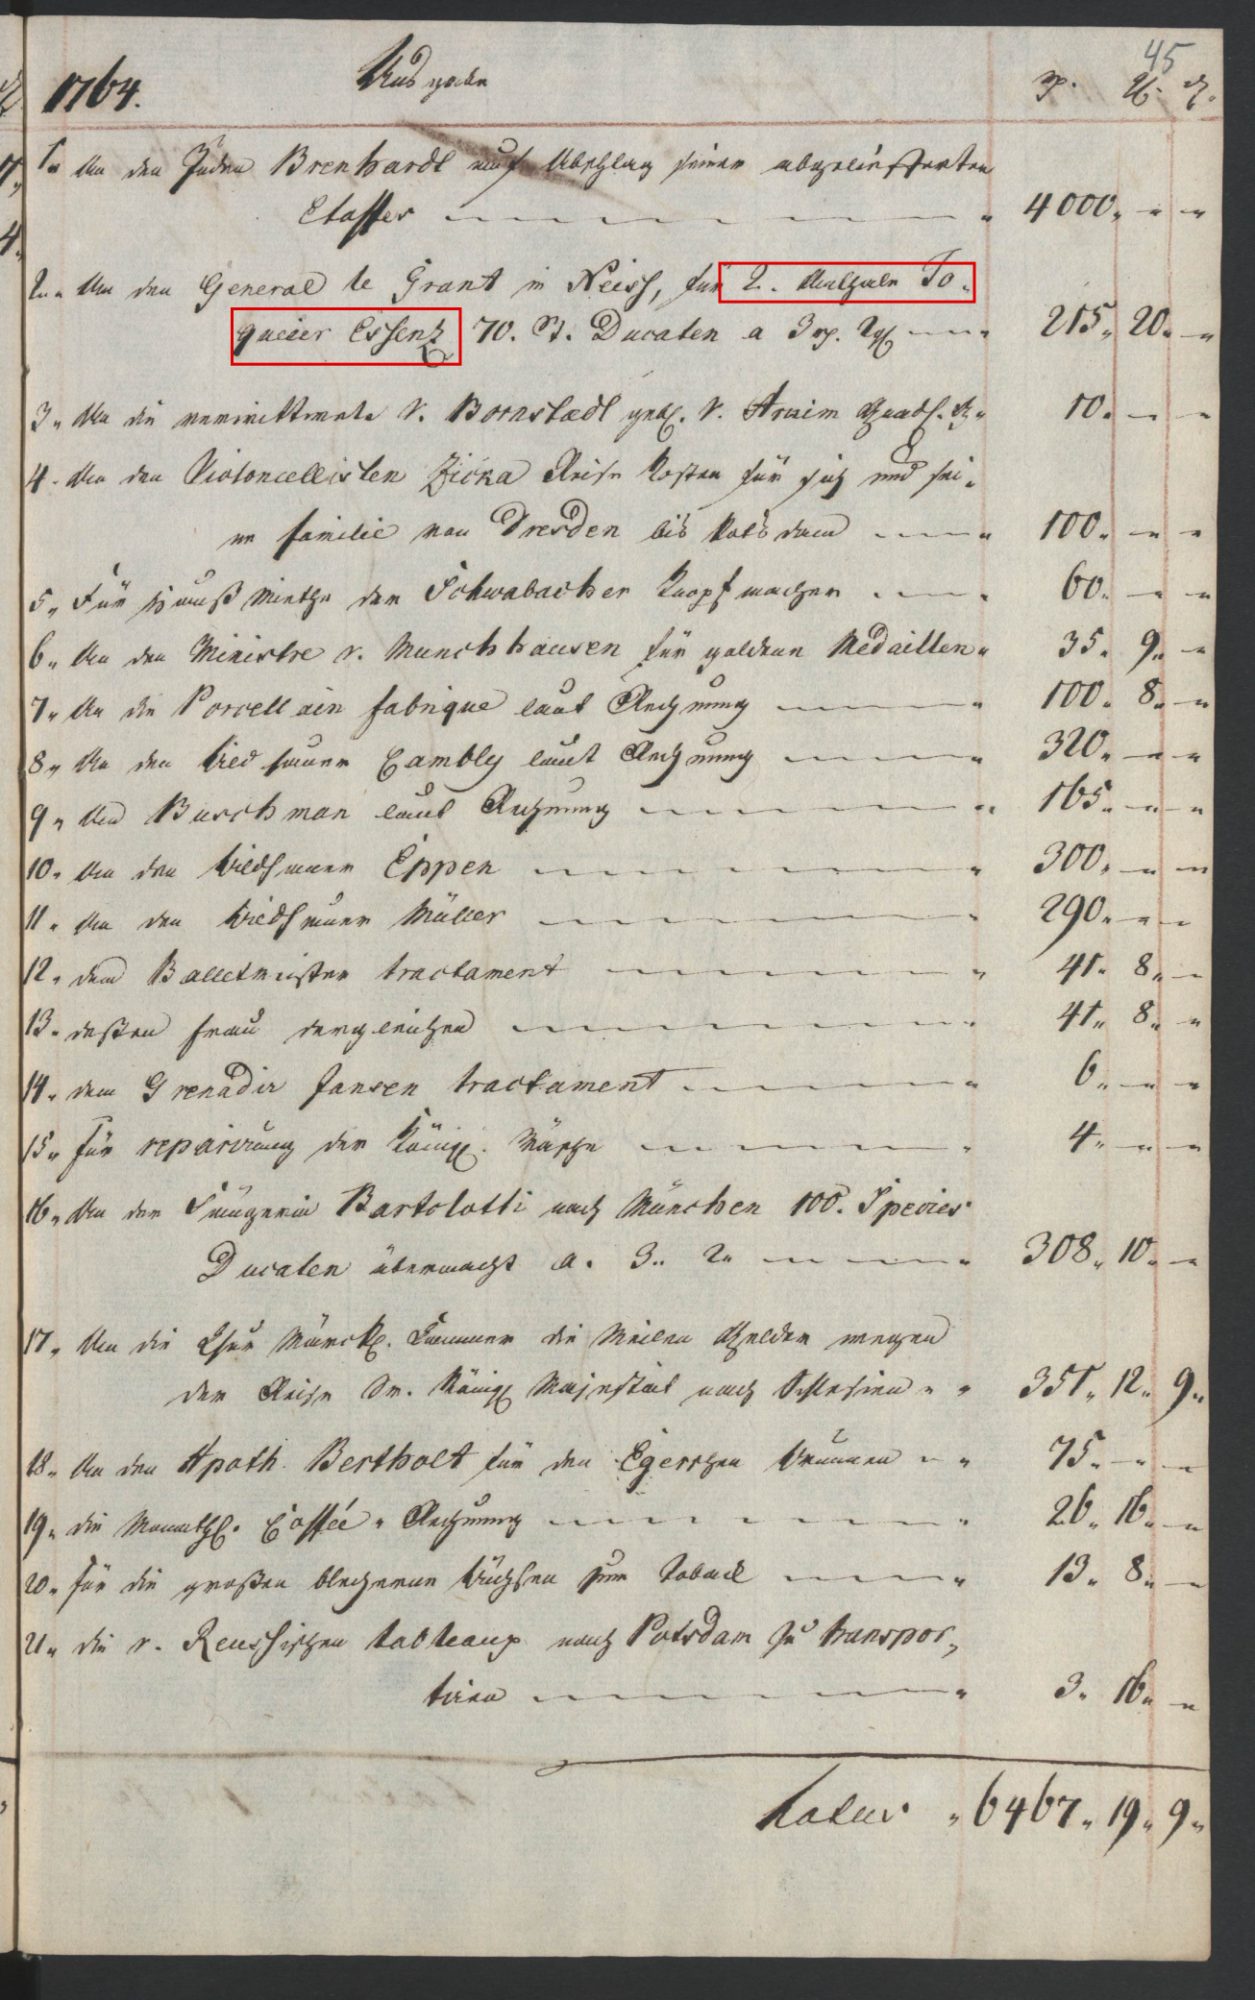 45
1764. Ausgabe rp. gr. d.
1. An den Juden Brenhardt auf Abschlag seiner abgeliefferten
Etoffes 4000. - -
2. An den General le Grant in Neiss, für 2. Antheile To-
quaier Essenz 70. St. Ducaten a 3 rp. 2 gr 215. 20. -
3. An die verwittwete v. Bornstædt geb. v. Arnim Gnad. G. 10. - -
4. An den Violoncellisten Zicka Reise Kosten für sich und sei-
ne familie von Dresden bis Potsdam 100. - -
5. Für Hauß Miethe der Schwabacher Knopfmacher 60. - -
6. An den Ministre v. Munchhausen für goldene Medaillen 35. 9. -
7. An die Porcellain fabrique laut Rechnung 100. 8. -
8. An den Bildhauer Cambly laut Rechnung 320. - -
9. An Buschman laut Rechnung 165. - -
10. An den Bildhauer Eppen 300. - -
11. An den Bildhauer Müller 290. - -
12. dem Balletmeister tractament 41. 8. -
13. deßen Frau dergleichen 41. 8. -
14. dem Grenadir Jansen tractament 6. - -
15. Für reparirung der Königl. Wäsche 4. - -
16. An der Sängerin Bartolotti nach München 100. Species
Ducaten übermacht a. 3. 2. 308. 10. -
17. An die Chur Märck. Cammer die Meilen Gelder wegen
der Reise Sr. Königl Majestät nach Schlesien 351. 12. 9.
18. An den Apoth. Bertholt für den Egerschen Brunnen 75. - -
19. die Monathl. Coffée Rechnung 26. 16. -
20. für die großen blechernen Büchsen zum Taback 13. 8. -
21. die v. Reussischen tableaux nach Potsdam zu transpor-
tiren 3. 16. -
Latus 6467. 19. 9.